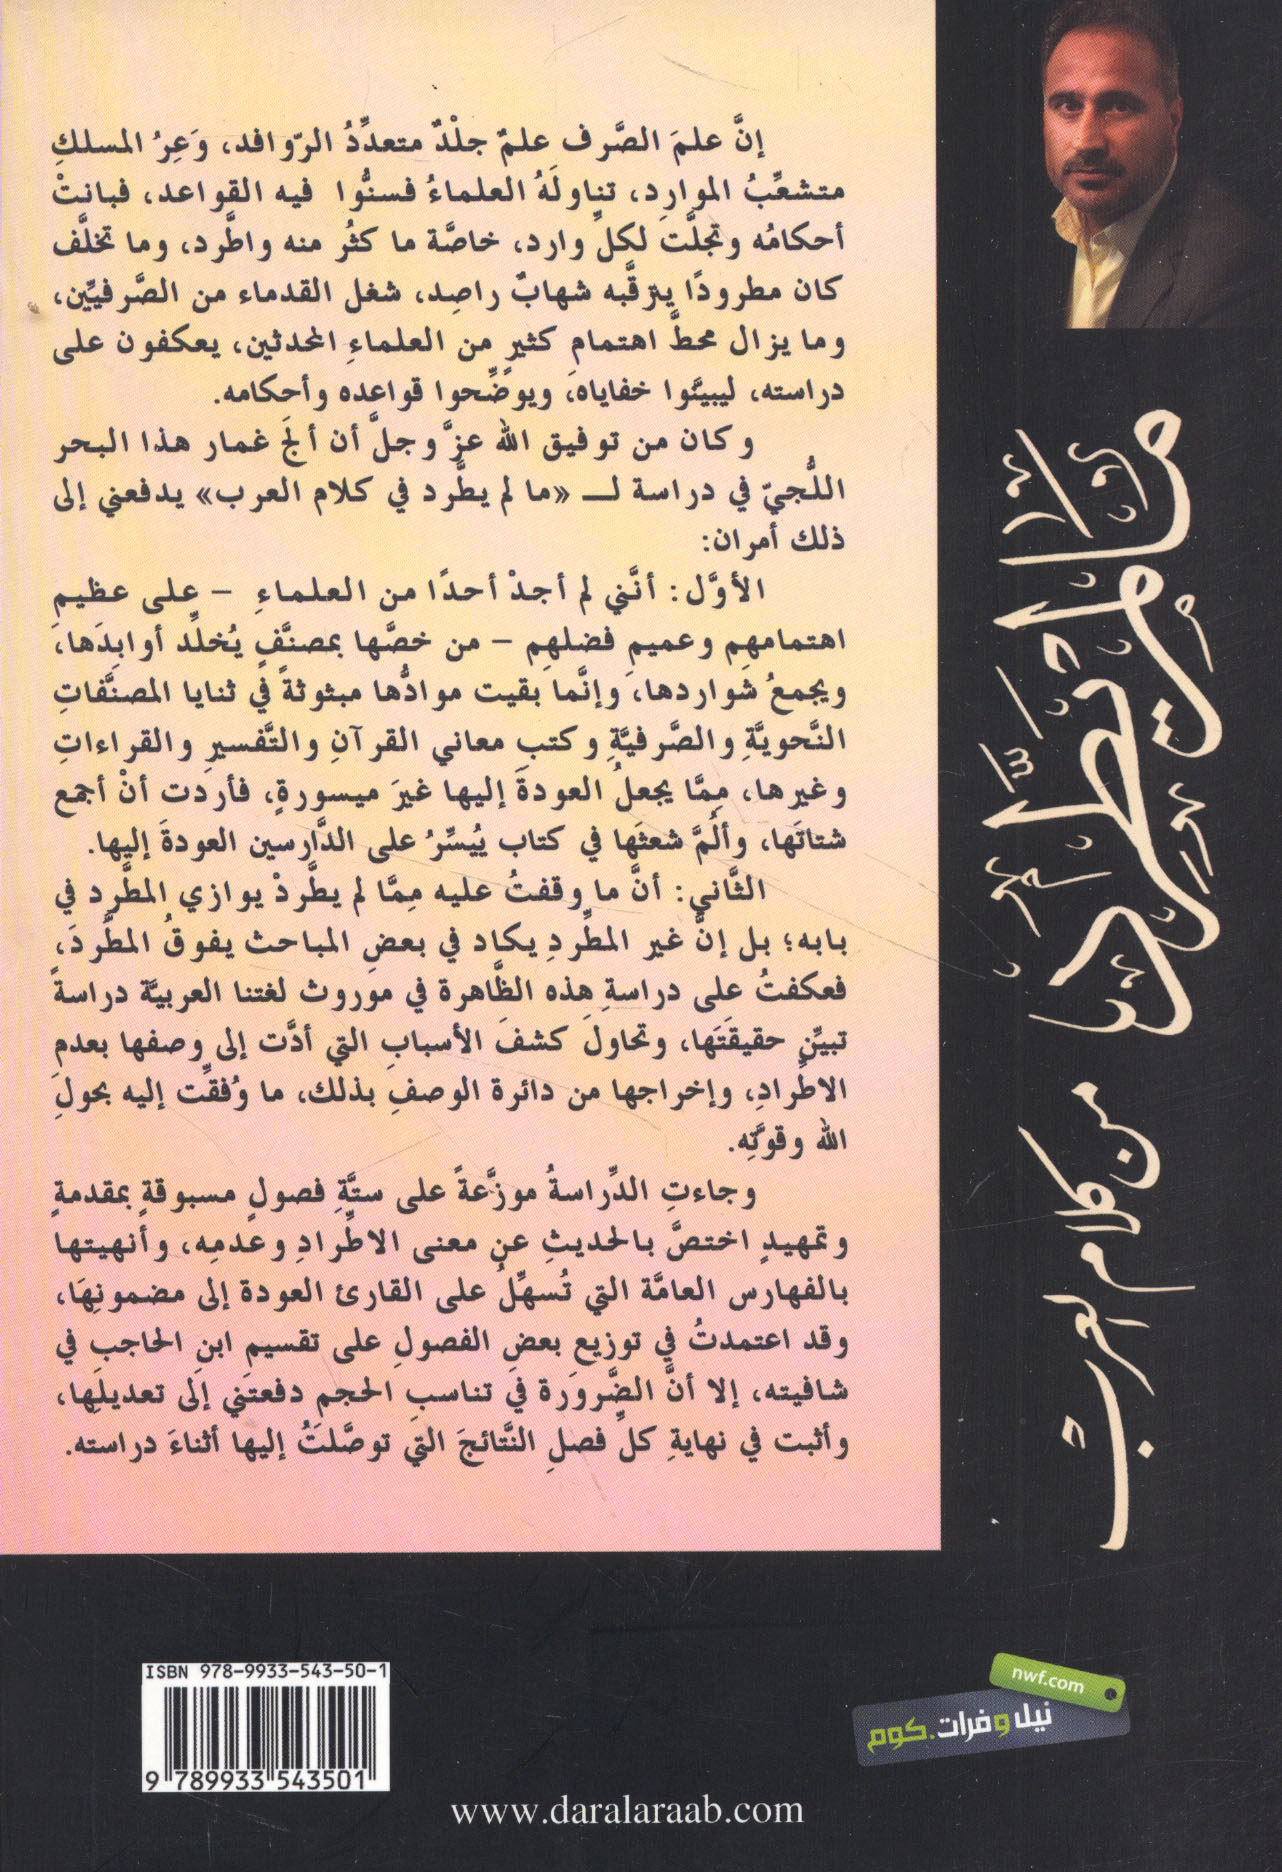 إنَّ علمَ الصَّرف علمٌ جلْدٌ متعدِّدُ الرّوافد، وَعِرُ المسلكِ
متشعِّبُ الموارِد، تناولَهُ العلماءُ فسنُّوا فيه القواعد، فبانتْ
أحكامُه وتجلَّت لكلِّ وارد، خاصَّة ما كثُر منه واطَّرد، وما تخلَّف
كان مطرودًا يترقَّبه شهابٌ راصِد، شغل القدماء من الصَّرفيِّين،
وما يزال محطَّ اهتمامِ كثيرٍ من العلماءِ المحدثين، يعكفون على
دراسته، ليبيِّنوا خفاياه، ويوضِّحوا قواعده وأحكامه.
وكان من توفيق الله عزَّ وجلَّ أن ألجَ غمار هذا البحر
اللُّجيّ في دراسة لـ «ما لم يطَّرد في كلام العرب» يدفعني إلى
ذلك أمران:
الأوَّل: أنَّني لم أجدْ أحدًا من العلماءِ - على عظيمِ
اهتمامهِم وعميمِ فضلهِم - من خصَّها بمصنَّفٍ يُخلِّد أوابِدَها،
ويجمعُ شَواردها، وإنَّما بقيت موادُّها مبثوثةً في ثنايا المصنَّفاتِ
النَّحويَّةِ والصَّرفيَّةِ وكتبِ معاني القرآنِ والتَّفسيرِ والقراءاتِ
وغيرها، مِمَّا يجعلُ العودةَ إليها غيرَ ميسورةٍ، فأردت أنْ أجمع
شتاتَها، وألُمَّ شعثَها في كتاب يُيَسِّرُ على الدَّارسين العودةَ إليها.
الثَّاني: أنَّ ما وقفتُ عليه مِمَّا لم يطَّردْ يوازي المطَّرد في
بابه؛ بل إنَّ غير المطِّردِ يكاد في بعضِ المباحث يفوقُ المطَّردَ،
فعكفتُ على دراسةِ هذه الظَّاهرة في موروث لغتنا العربيَّة دراسةً
تبيِّن حقيقَتَها، وتحاولُ كشفَ الأسبابِ التي أدَّت إلى وصفها بعدمِ
الاطِّرادِ، وإخراجها من دائرة الوصفِ بذلك، ما وُفقِّت إليه بحولِ
الله وقوَّتِه.
وجاءتِ الدِّراسةُ موزَّعةً على ستَّةِ فصولٍ مسبوقةٍ بمقدمةٍ
وتمهيدٍ اختصَّ بالحديثِ عن معنى الاطِّرادِ وعدمِه، وأنهيتها
بالفهارس العامَّة التي تُسهِّلُ على القارئ العودة إلى مضمونِها،
وقد اعتمدتُ في توزيع بعضِ الفصولِ على تقسيمِ ابنِ الحاجبِ في
شافيته، إلا أنَّ الضَّرورة في تناسبِ الحجم دفعتني إلى تعديلِها،
وأثبت في نهايةِ كلِّ فصلِ النَّتائجَ التي توصَّلتُ إليها أثناءَ دراسته.
من كلام العرب
ISBN 978-9933-543-50-1
9 789933 543501
nwf.com
نيل وفرات.كوم
www.daralaraab.com